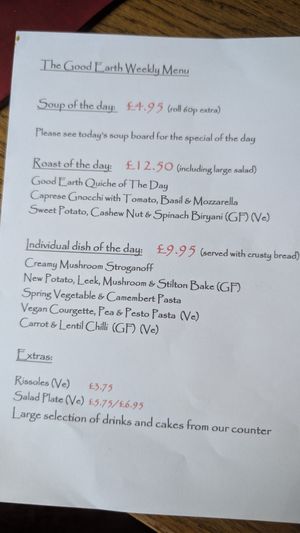 The Good Earth Weekly Menu
Soup of the day: £4.95 (roll 60p extra)
Please see today's soup board for the special of the day
Roast of the day: £12.50 (including large salad)
Good Earth Quiche of The Day
Caprese Gnocchi with Tomato, Basil & Mozzarella
Sweet Potato, Cashew Nut & Spinach Biryani (GF) (Ve)
Individual dish of the day: £9.95 (served with crusty bread)
Creamy Mushroom Stroganoff
New Potato, Leek, Mushroom & Stilton Bake (GF)
Spring Vegetable & Camembert Pasta
Vegan Courgette, Pea & Pesto Pasta (Ve)
Carrot & Lentil Chilli (GF) (Ve)
Extras:
Rissoles (Ve) £3.75
Salad Plate (Ve) £5.75/£6.95
Large selection of drinks and cakes from our counter